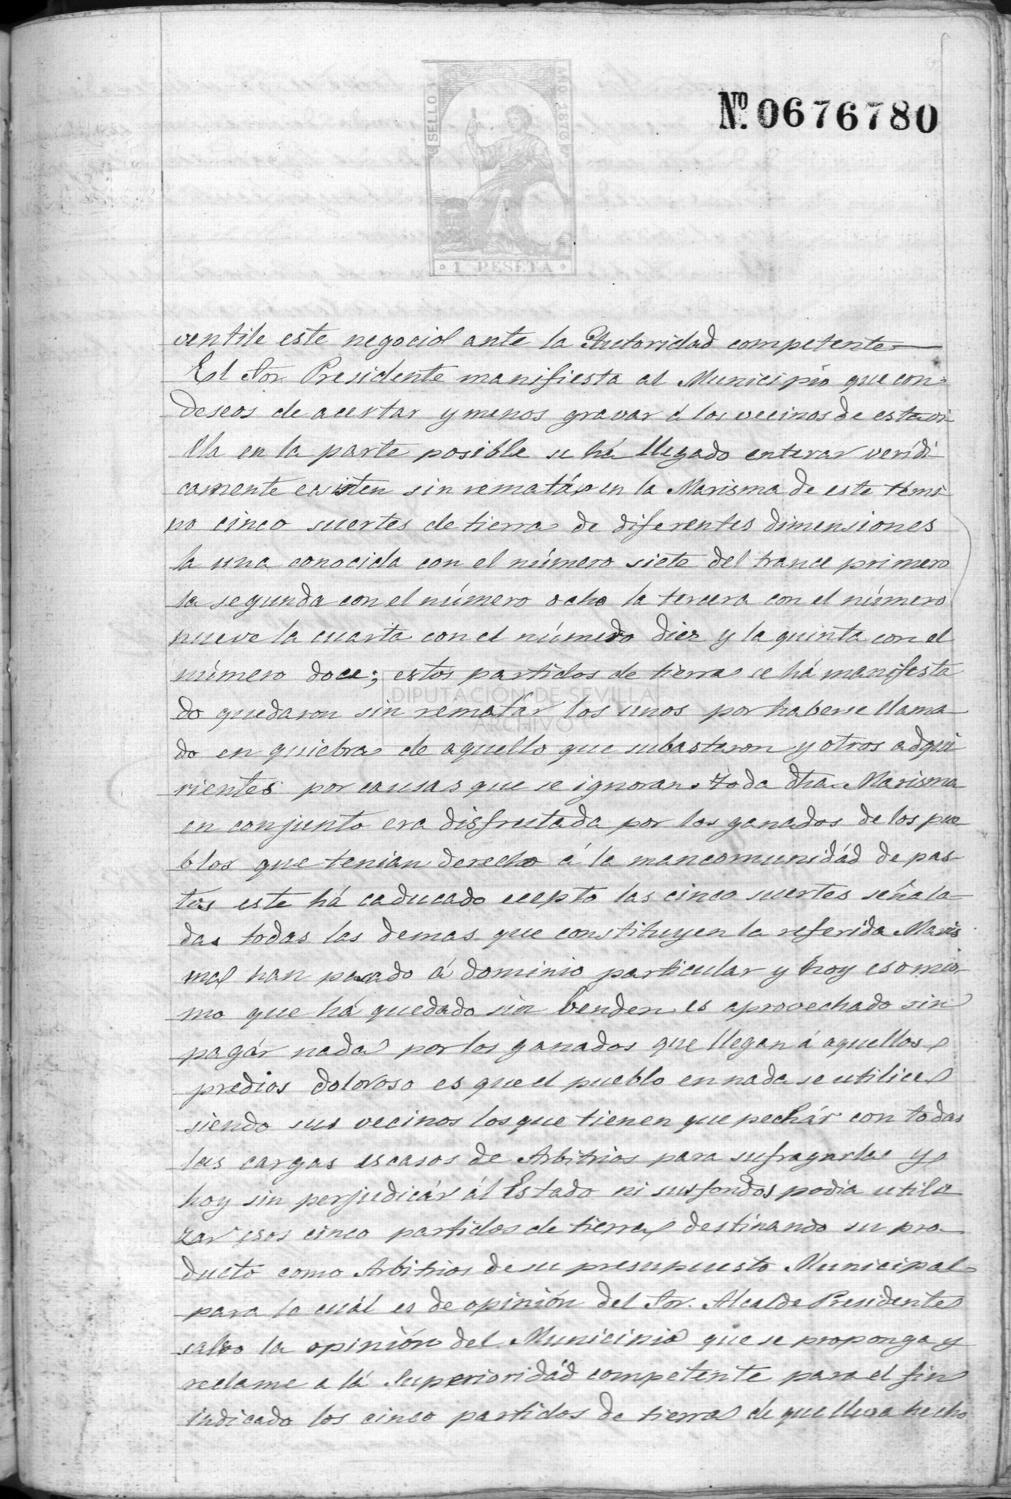 SELLO 11º AÑO 1870
Nº 0676780
1ª PESETA
ventile este negociol ante la Autoridad competente
El Sor. Presidente manifiesta al Municipio que con
deseos de acertar y menos gravar á los vecinos de esta vi
lla en la parte posible se há llegado enterar verídi
camente ecsisten sin rematár en la Marisma de este térmi
no cinco suertes de tierra de diferentes dimensiones
la una conocida con el número siete del trance primero
la segunda con el número ocho la tercera con el número
nueve la cuarta con el número diez y la quinta con el
número doce; estos partidos de tierra se há manifesta
do quedaron sin rematár los unos por haberse llama
do en quiebra de aquello que subastaron y otros adqui
rientes por causas que se ignoran. Toda dha Marisma
en conjunto era disfrutada por los ganados de los pue
blos que tenian derecho á la mancomunidád de pas-
tos este há caducado ecepto las cinco suertes señala
das todas las demas que constituyen la referida Maris
ma han pasado á dominio particular y hoy eso mis
mo que há quedado sin bender es aprovechado sin
pagár nada por los ganados que llegan á aquellos
predios doloroso es que el pueblo en nada se utilice
siendo sus vecinos los que tienen que pechár con todas
las cargas escasos de Arbitrios para sufragarlas y
hoy sin perjudicár ál Estado ni sus fondos podia utili
zar esos cinco partidos de tierra destinando su pro
ducto como Arbitrios de su presupuesto Municipal
para lo cuál es de opinión del Sor. Alcalde Presidente
salvo la opinión del Municipio que se proponga y
reclame a lá Superioridád competente para el fin
indicado los cinco partidos de tierra de que lleva hecho
DIPUTACIÓN DE SEVILLA
ARCHIVO